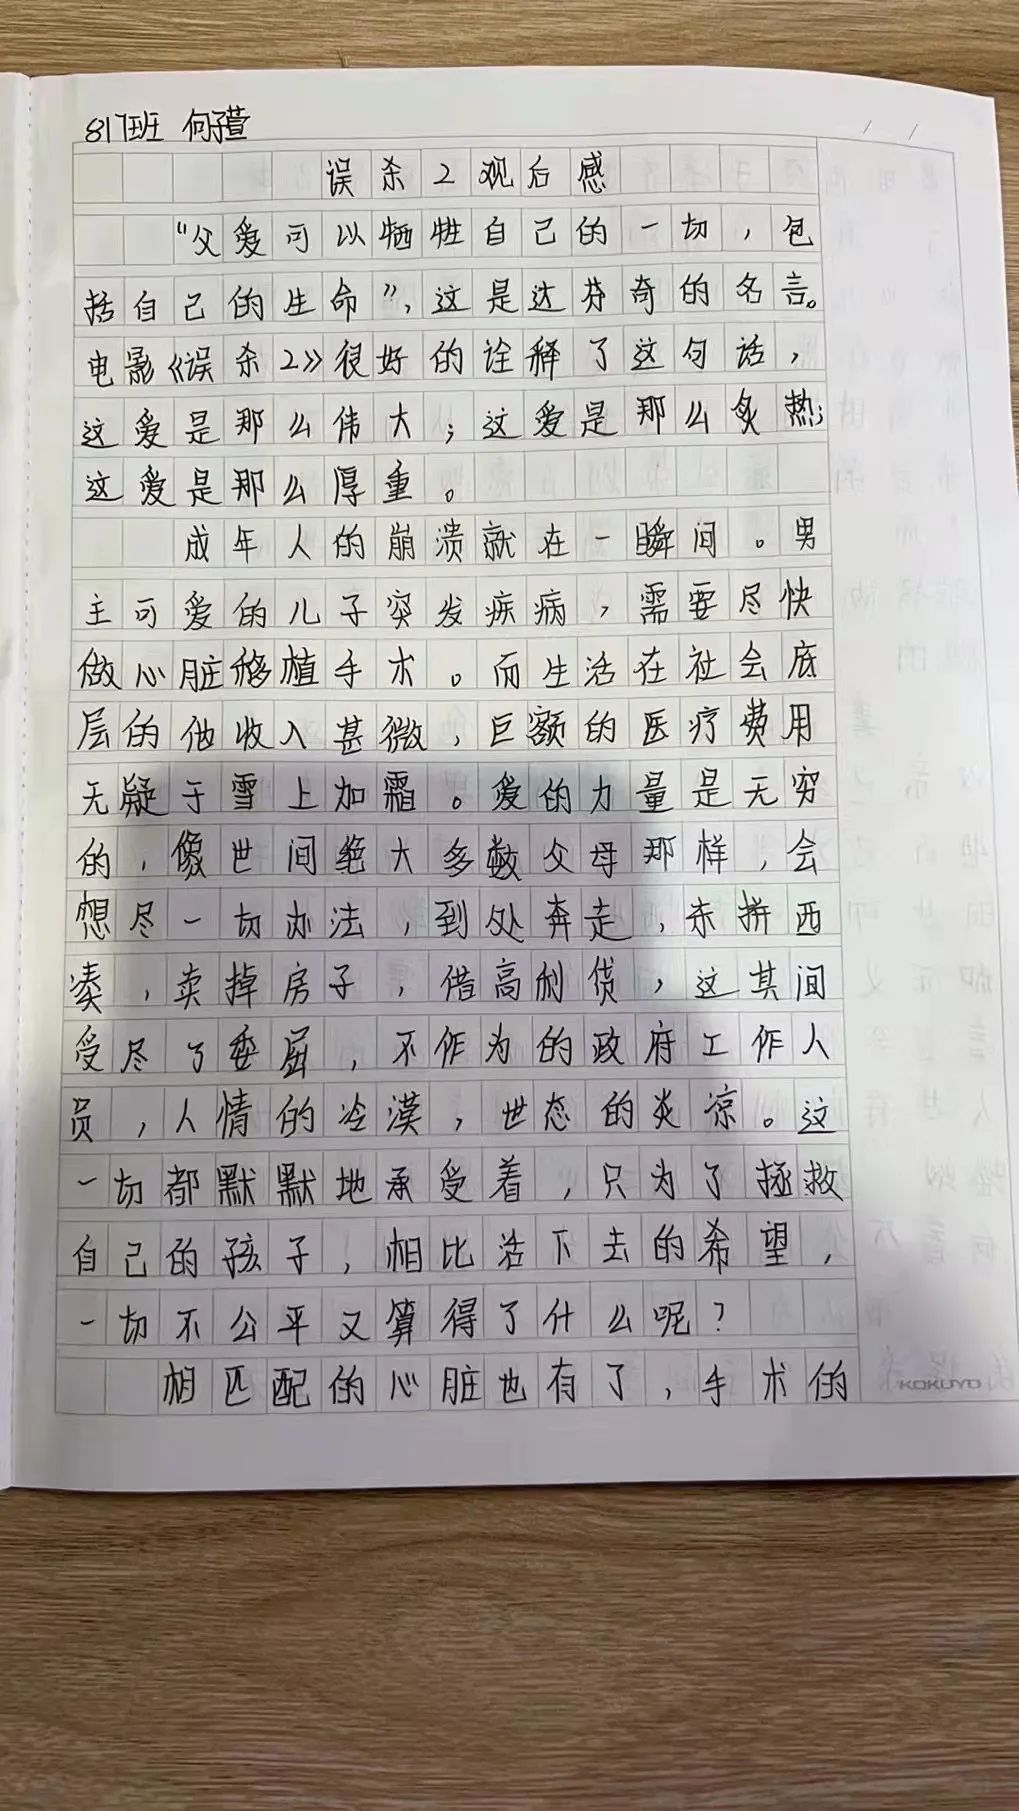 817班 何子萱
误杀2观后感
“父爱可以牺牲自己的一切，包
括自己的生命”，这是达芬奇的名言。
电影《误杀2》很好的诠释了这句话，
这爱是那么伟大；这爱是那么炙热；
这爱是那么厚重。
成年人的崩溃就在一瞬间。男
主可爱的儿子突发疾病，需要尽快
做心脏移植手术。而生活在社会底
层的他收入甚微，巨额的医疗费用
无疑于雪上加霜。爱的力量是无穷
的，像世间绝大多数父母那样，会
想尽一切办法，到处奔走，东拼西
凑，卖掉房子，借高利贷，这其间
受尽了委屈，不作为的政府工作人
员，人情的冷漠，世态的炎凉。这
一切都默默地承受着，只为了拯救
自己的孩子，相比活下去的希望，
一切不公平又算得了什么呢？
相匹配的心脏也有了，手术的
KOKUYO